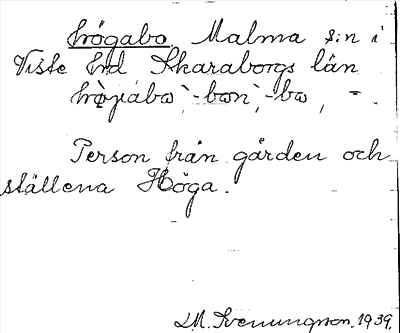 högabo Malma s:n i
Viste hd Skaraborgs län
-bon, -bo, =
Person från gården och
ställena Höga.
1939.